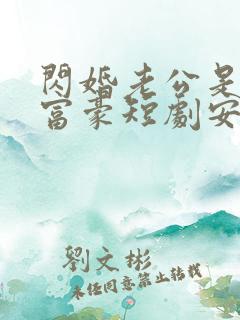 閃婚老公是
富豪短劇安
劉文彬
未经同意禁止转载